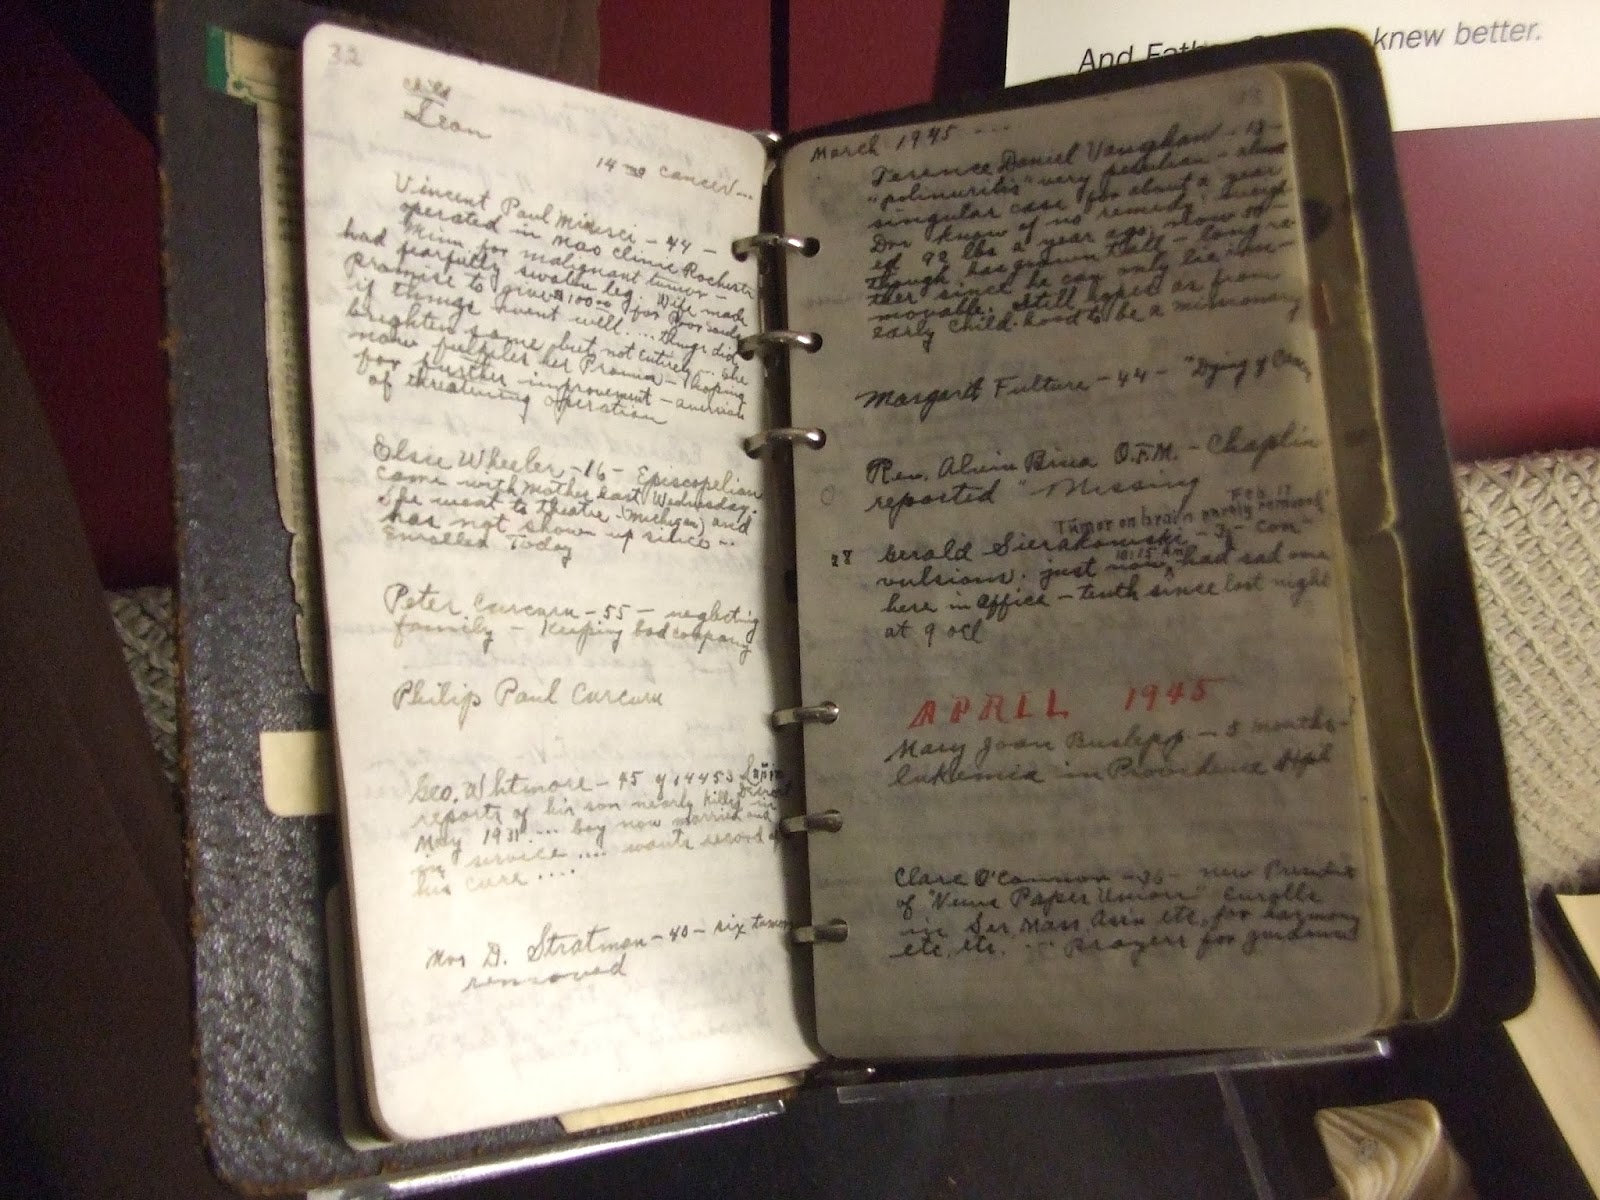 And knew better.
32
child
Leon
14 mo cancer...
Vincent Paul Minisci - 44 -
operated in Mao Clinic Rochester
Minn for malignant tumor -
had fearfully swolen leg. Wife made
promise to give $100.00 for Poor Souls
if things went well.... things did
brighten some but not entirely... she
now fulfiles her Promise - hoping
for further improvement -
of threatening operation
Elsie Wheeler - 16 - Episcopelian
came with Mother last Wednesday.
She went to theatre (Michigan) and
has not shown up since...
Enrolled Today
Peter Curcuru - 55 - neglecting
family - Keeping bad company
Philip Paul Curcuru
Geo. Whtmore - 45 of 14453
reports of his son nearly killed in Detroit
May 1931 ... boy now married and
in service .... wants record of
his cure ....
Mrs D. Stratman - 40 - six tumors
removed
March 1945 ...
Terence Daniel Vaughan - 18 -
"polinuritis" very peculiar -
singular case for about a year
Drs know of no remedy. weigh
ed 92 lbs a year ago, now 50 -
though has grown tall - long ra-
ther since he can only lie imm-
movable. Still hopes as from
early child-hood to be a missionary
Margaret Fulture - 44 - "Dying of Cancer
Rev. Alvin O.F.M. - Chaplin
reported "Missing
Feb. 17
Tumor on brain partly removed
28 Gerald Sierakowski - 3½ - "Con
vulsions. just now, 10:15 AM had sad one
here in office - tenth since last night
at 9 ocl
APRIL 1945
Mary Joan - 5 months -
lukemia in Providence Hspl
Clare O'Connor - 36 - new President
of "News Paper Union" Enrolls
in Ser. Mass Assn etc. for harmony
etc. etc. ... Prayers for guidance